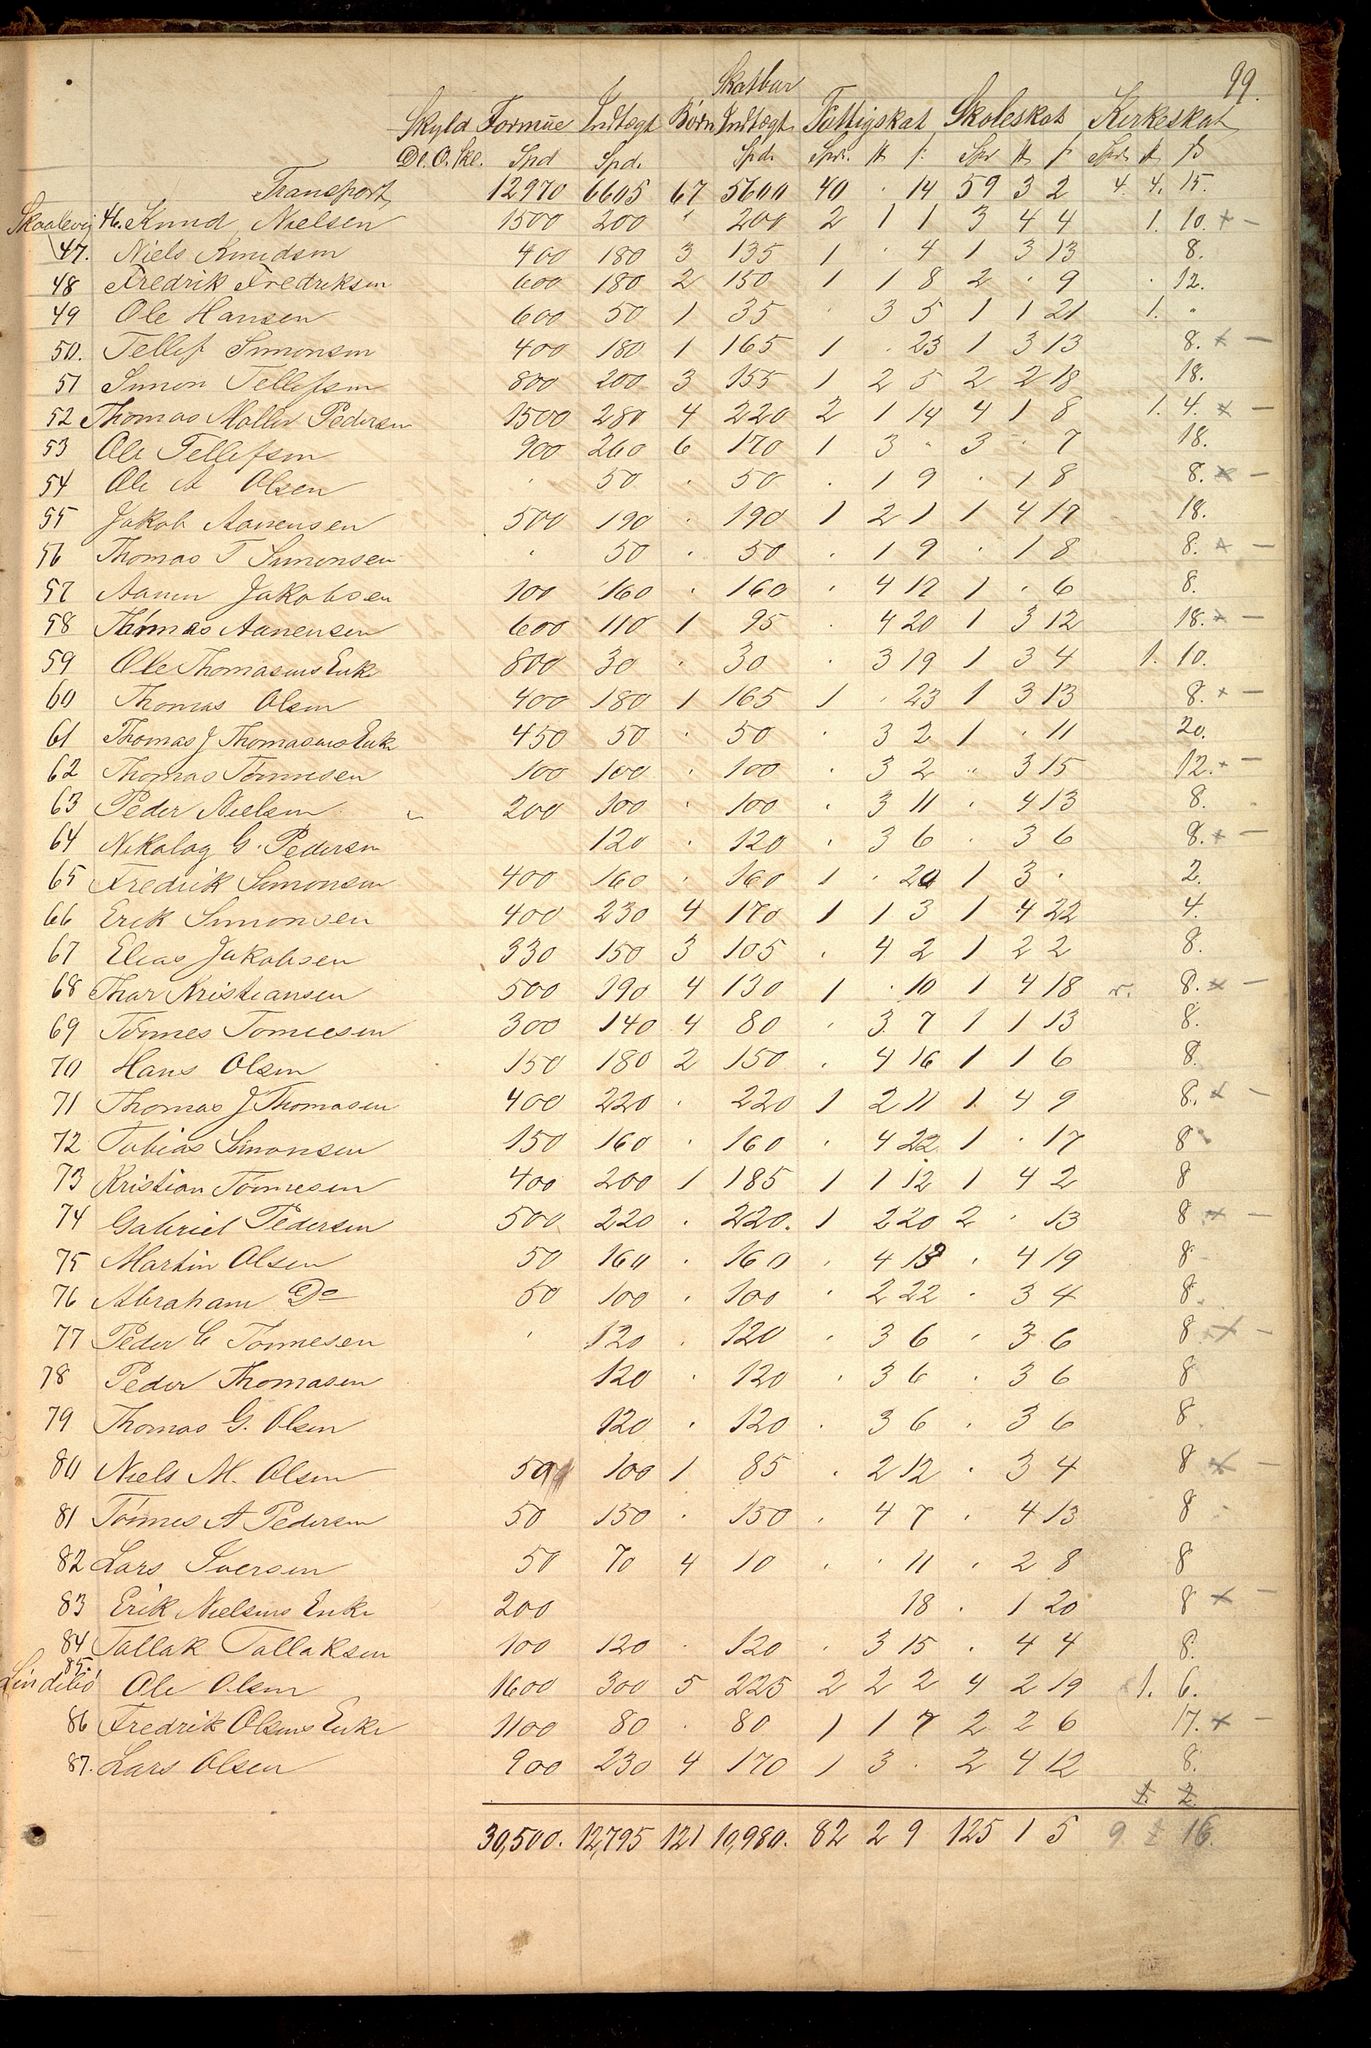 99.
Skatbar
Skyld Formue Indtægt Børn Indtægt Fattigskat Skoleskat Kirkeskat
D. O. Skl. Spd Spd. Spd. Spd. # ß Spd # ß Spd. # ß
Transport 12970 6605 67 5600 40 . 14 59 3 2 4. 4. 15.
Skaalevig 46. Knud Nielsen 1500 200 " 200 2 1 1 3 4 4 1. 10. x –
47. Niels Knudsen 400 180 3 135 1 . 4 1 3 13 8.
48 Fredrik Fredriksen 600 180 2 150 1 1 8 2 . 9 . 12.
49 Ole Hansen 600 50 1 35 . 3 5 1 1 21 1. "
50. Tellef Simonsen 400 180 1 165 1 . 23 1 3 13 8. x –
51 Simon Tellefsen 800 200 3 155 1 2 5 2 2 18 18.
52 Thomas Møller Pedersen 1500 280 4 220 2 1 14 4 1 8 1. 4. x –
53 Ole Tellefsen 900 260 6 170 1 3 . 3 . 7 18.
54 Ole A Olsen . 50 . 50 . 1 9 . 1 8 8. x –
55 Jakob Aanensen 500 190 . 190 1 2 1 1 4 19 18.
56 Thomas T Simonsen . 50 . 50 . 1 9 . 1 8 8. x –
57 Aanen Jakobsen 100 160 . 160 . 4 17 1 . 6 8.
58 Thomas Aanensen 600 110 1 95 . 4 20 1 3 12 18. x –
59 Ole Thomasens Enke 800 30 . 30 . 3 19 1 3 4 1. 10.
60 Thomas Olsen 400 180 1 165 1 . 23 1 3 13 8. x –
61 Thomas J Thomasens Enke 450 50 . 50 . 3 2 1 . 11 20.
62 Thomas Tønnesen 100 100 . 100 . 3 2 " 3 15 12. x –
63 Peder Nielsen 200 100 . 100 . 3 11 . 4 13 8.
64 Nikolay G. Pedersen 120 . 120 . 3 6 . 3 6 8. x –
65 Fredrik Simonsen 400 160 . 160 1 . 20 1 3 . 2.
66 Erik Simonsen 400 230 4 170 1 1 3 1 4 22 4.
67 Elias Jakobsen 330 150 3 105 . 4 2 1 2 2 8.
68 Thor Kristiansen 500 190 4 130 1 . 10 1 4 18 8. x –
69 Tønnes Tønnesen 300 140 4 80 . 3 7 1 1 13 8.
70 Hans Olsen 150 180 2 150 . 4 16 1 1 6 8.
71 Thomas J Thomasen 400 220 . 220 1 2 11 1 4 9 8. x –
72 Tobias Simonsen 150 160 . 160 . 4 22 1 . 17 8
73 Kristian Tønnesen 400 200 1 185 1 1 12 1 4 2 8
74 Gabriel Pedersen 500 220 . 220. 1 2 20 2 . 13 8 x –
75 Martin Olsen 50 160 . 160 . 4 13 . 4 19 8
76 Abraham Do 50 100 . 100 . 2 22 . 3 4 8
77 Peder C Tønnesen . 120 . 120 . 3 6 . 3 6 8 x –
78 Peder Thomasen 120 . 120 . 3 6 . 3 6 8
79 Thomas G. Olsen 120 . 120 . 3 6 . 3 6 8
80 Niels M. Olsen 50 100 1 85 . 2 12 . 3 4 8 x –
81 Tønnes A Pedersen 50 150 . 150 . 4 7 . 4 13 8
82 Lars Iversen 50 70 4 10 . . 11 . 2 8 8
83 Erik Nielsens Enke 200 18 . 1 20 8 x –
84 Tallak Tallaksen 100 120 . 120 . 3 15 . 4 4 8.
Lindebø 85. Ole Olsen 1600 300 5 225 2 2 2 4 2 19 1. 6.
86 Fredrik Olsens Enke 1100 80 . 80 1 1 7 2 2 6 17. x –
87. Lars Olsen 900 230 4 170 1 3 . 2 4 12 8.
1. 2.
30,500. 12,795 121 10,980. 82 2 9 125 1 5 9. 16.